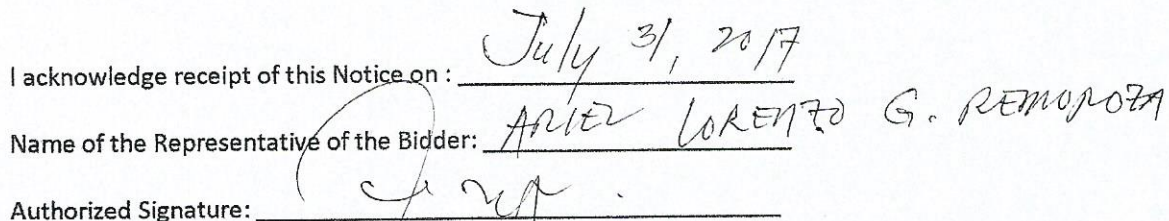 I acknowledge receipt of this Notice on : July 31, 2017
Name of the Representative of the Bidder: ARIEL LORENZO G. REMOROZA
Authorized Signature: